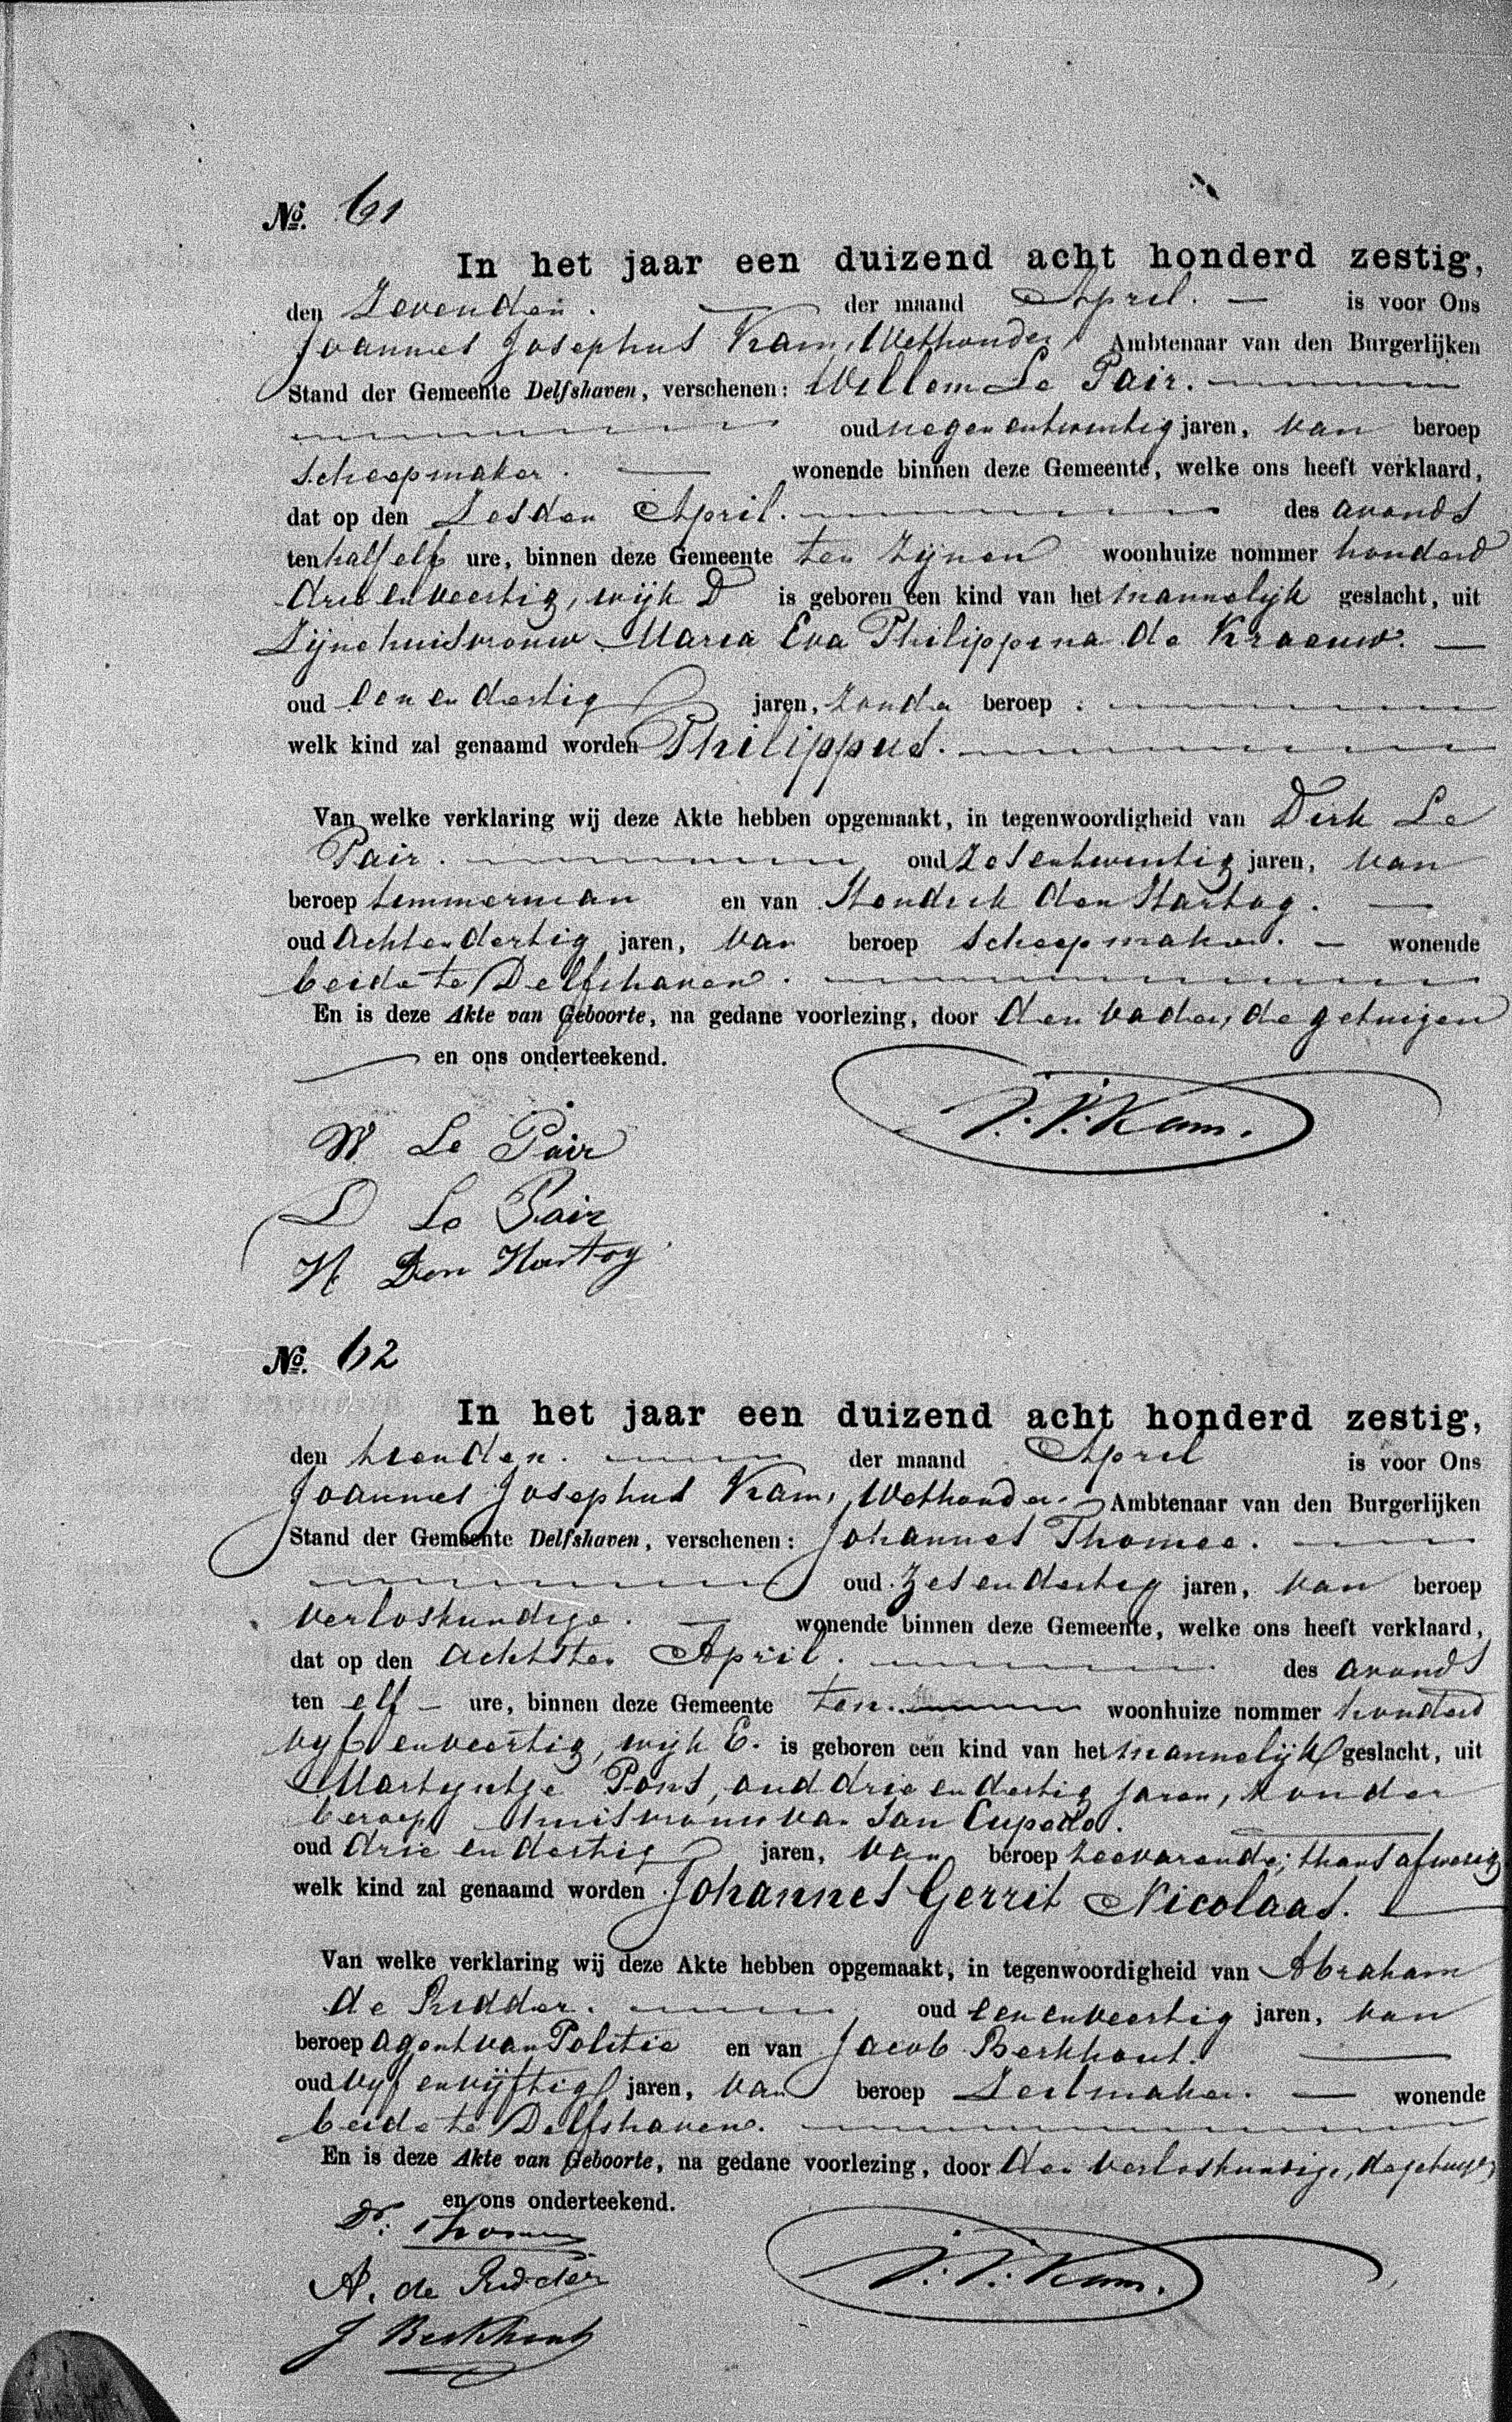 No. 61
In het jaar een duizend acht honderd zestig,
den Zevenden. der maand April. is voor Ons
Joannes Josephus Kam, Wethouder Ambtenaar van den Burgerlijken
Stand der Gemeente Delfshaven, verschenen: Willem Le Pair.
oud negenentwintig jaren, van beroep
scheepmaker. wonende binnen deze Gemeente, welke ons heeft verklaard,
dat op den Zesden April. des avonds
ten half elf ure, binnen deze Gemeente ten zijnen woonhuize nommer honderd
drie en veertig, wijk D is geboren een kind van het mannelijk geslacht, uit
Zijne huisvrouw Maria Eva Philippina de Kraeuw.
oud een en dertig jaren, zonder beroep.
welk kind zal genaamd worden Philippus.
Van welke verklaring wij deze Akte hebben opgemaakt, in tegenwoordigheid van Dirk Le
Pair. oud zesentwintig jaren, van
beroep timmerman en van Hendrik den Hartog.
oud achtendertig jaren, van beroep scheepmaker. wonende
beide te Delfshaven.
En is deze Akte van Geboorte, na gedane voorlezing, door den vader, de getuigen
en ons onderteekend.
J. J. Kam.
W Le Pair
D Le Pair
H Den Hartog
No. 62
In het jaar een duizend acht honderd zestig,
den tienden. der maand April is voor Ons
Joannes Josephus Kam, Wethouder Ambtenaar van den Burgerlijken
Stand der Gemeente Delfshaven, verschenen: Johannes Thomee.
oud zesendertig jaren, van beroep
verloskundige. wonende binnen deze Gemeente, welke ons heeft verklaard,
dat op den achtsten April. des avonds
ten elf ure, binnen deze Gemeente ten woonhuize nommer honderd
vyf en veertig, wijk E. is geboren een kind van het mannelijk geslacht, uit
Martyntje Pons, oud drie en dertig jaren, zonder
beroep huisvrouw van Jan Cupedo.
oud drie en dertig jaren, van beroep zeevarende; thans afwezig
welk kind zal genaamd worden Johannes Gerrit Nicolaas.
Van welke verklaring wij deze Akte hebben opgemaakt, in tegenwoordigheid van Abraham
de Ridder. oud eenenveertig jaren, van
beroep agent van Politie en van Jacob Berkhout.
oud vyf en vyftig jaren, van beroep Zeilmaker. wonende
beide te Delfshaven.
En is deze Akte van Geboorte, na gedane voorlezing, door den verloskundige, de getuigen
en ons onderteekend.
J. J. Kam.
A. de Ridder
J Berkhout